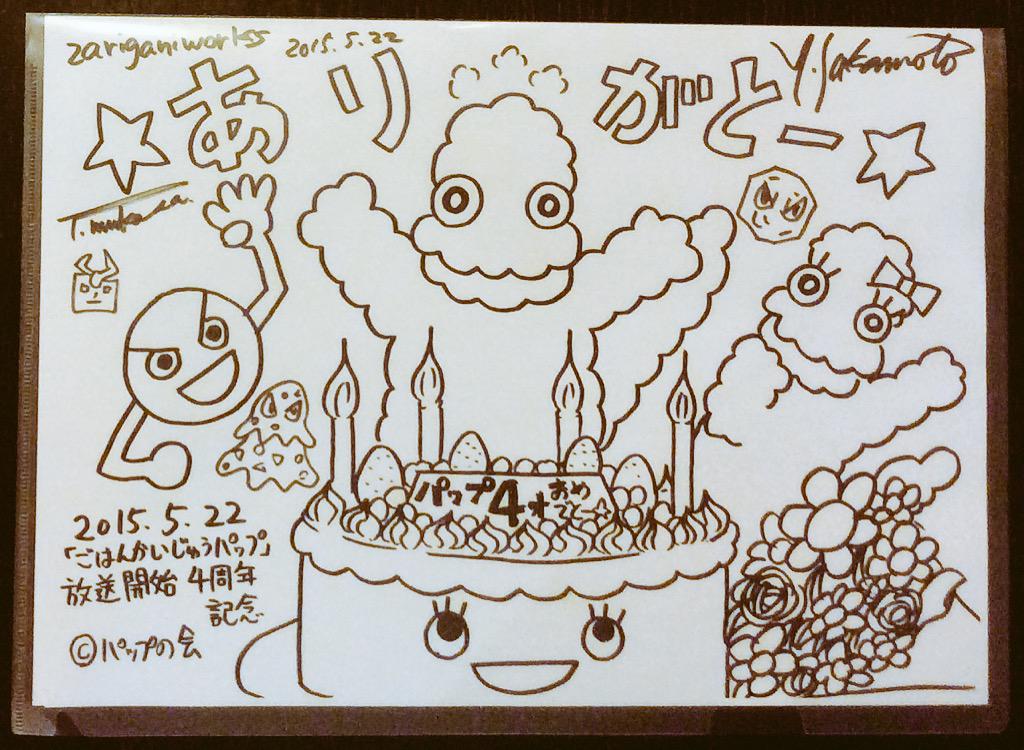 zariganiworks 2015.5.22
Y.Sakamoto
☆ありがとー☆
パップ4才おめでとー☆
2015.5.22
「ごはんかいじゅうパップ」
放送開始 4周年
記念
©パップの会